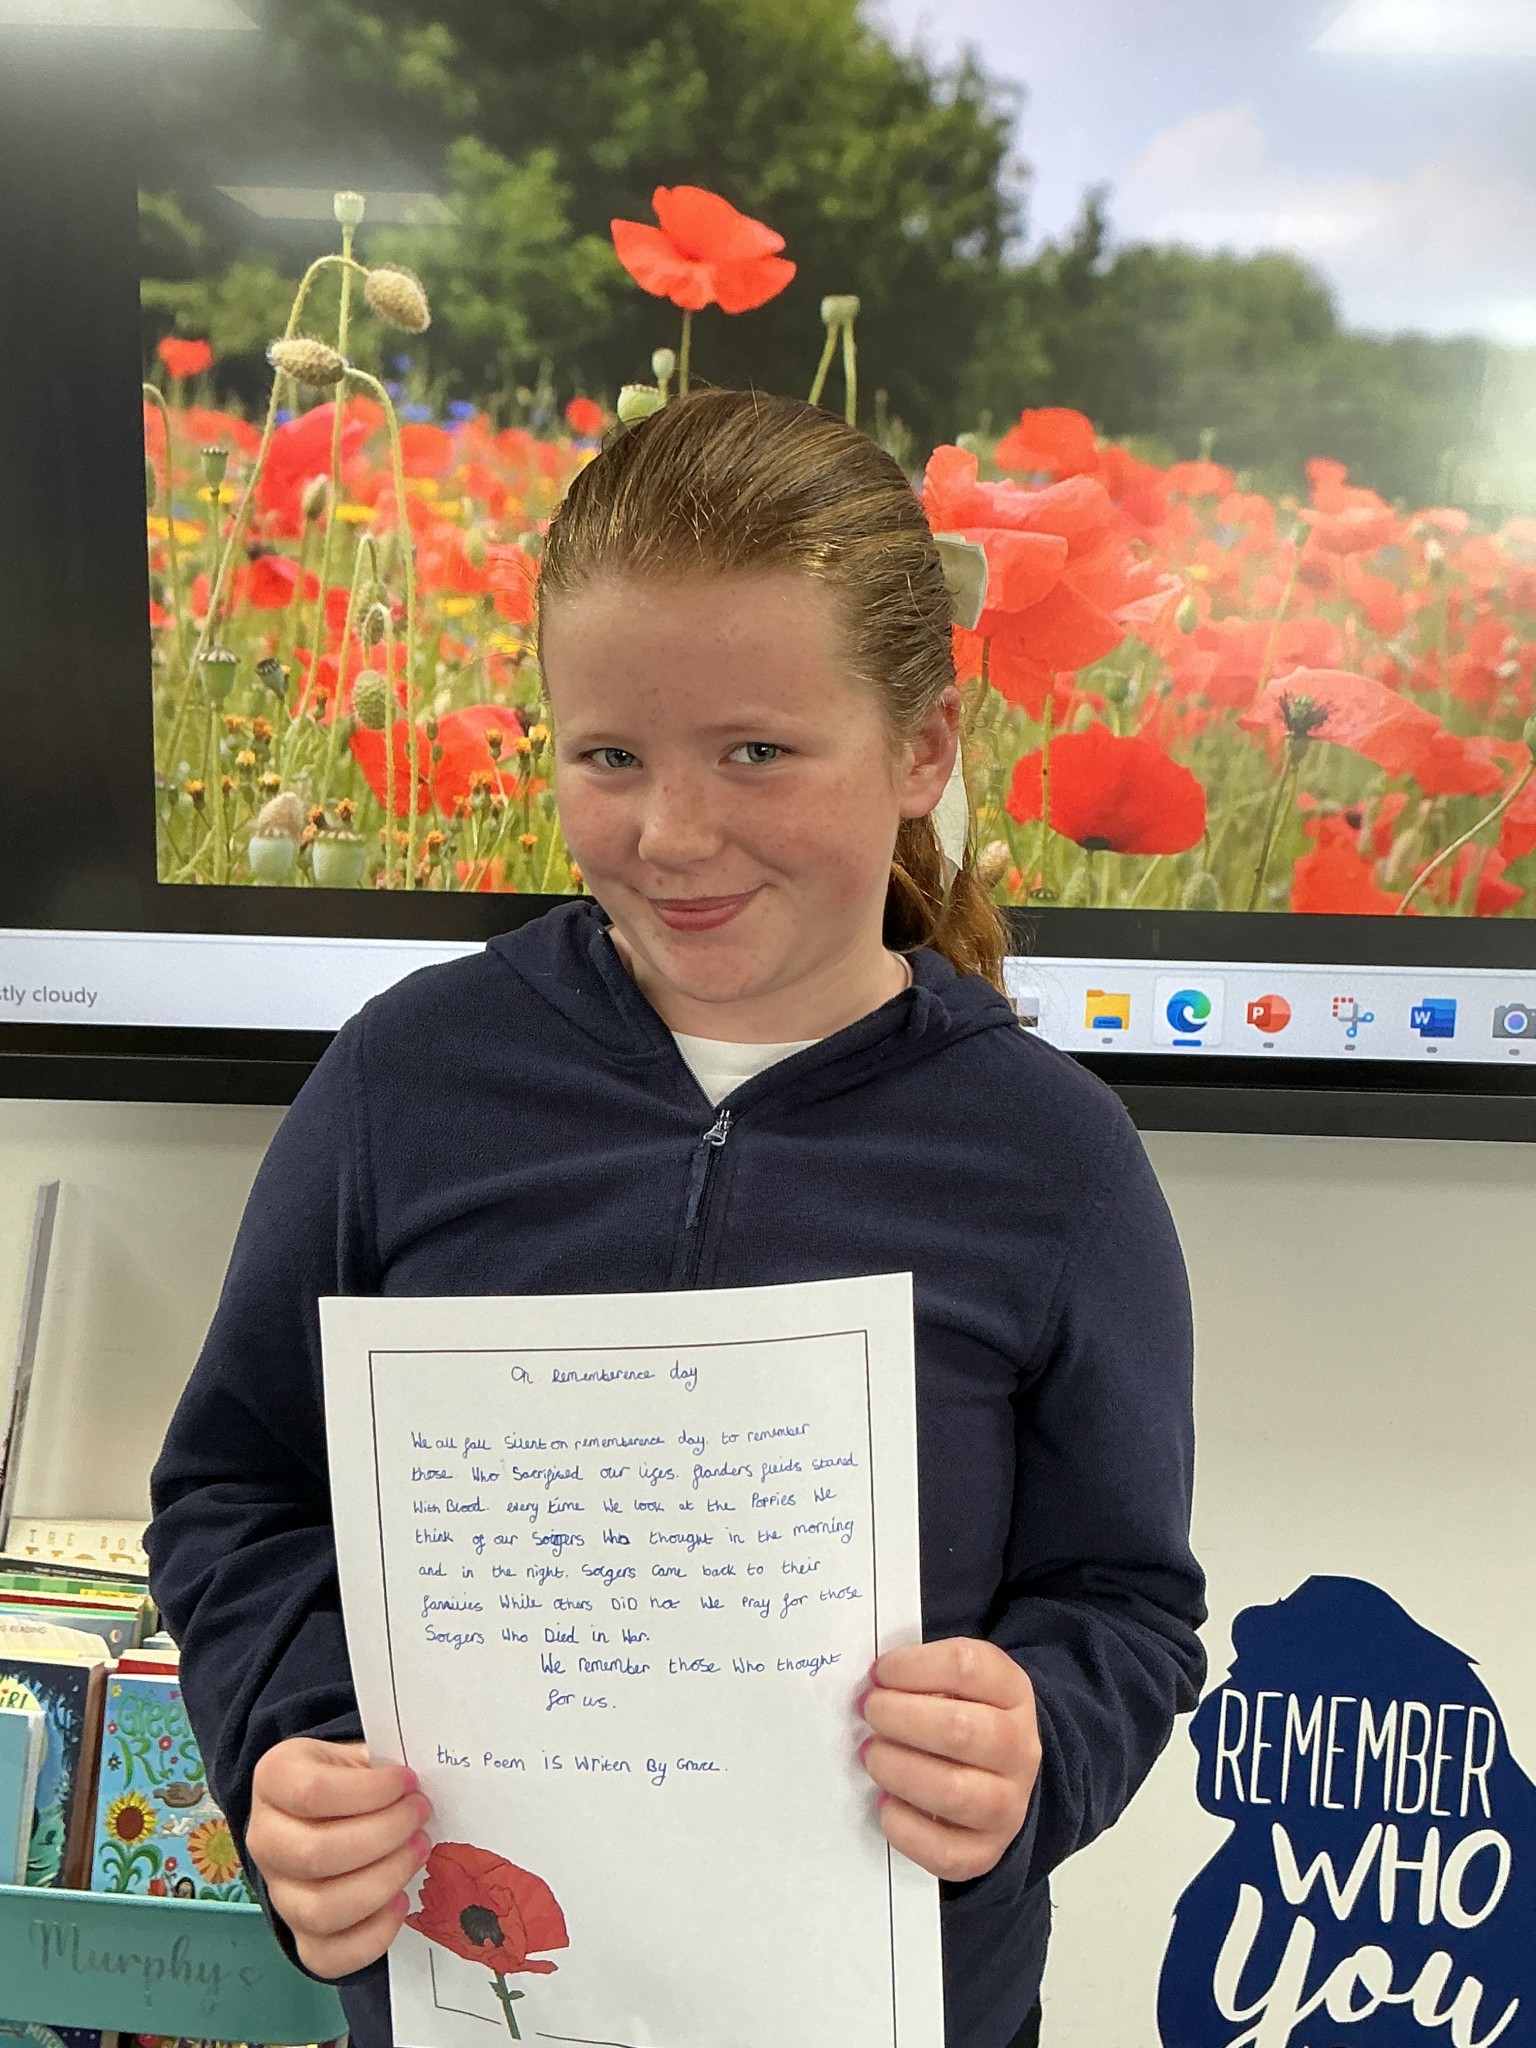 tly cloudy
On Rememberence day
We all fall Silent on rememberence day. to remember
those Who Sacrifised our lifes. flanders fields stand
With Blood. every time We look at the Poppies We
think of our Solgers Who thought in the morning
and in the night. Solgers came back to their
families While others DiD not We Pray for those
Solgers Who Died in War.
We remember those Who thought
for us.
this Poem is Writen By Grace.
THE BOO
READING
GIRL
Green
Kris
Murphy's
REMEMBER
WHO
You
P
W